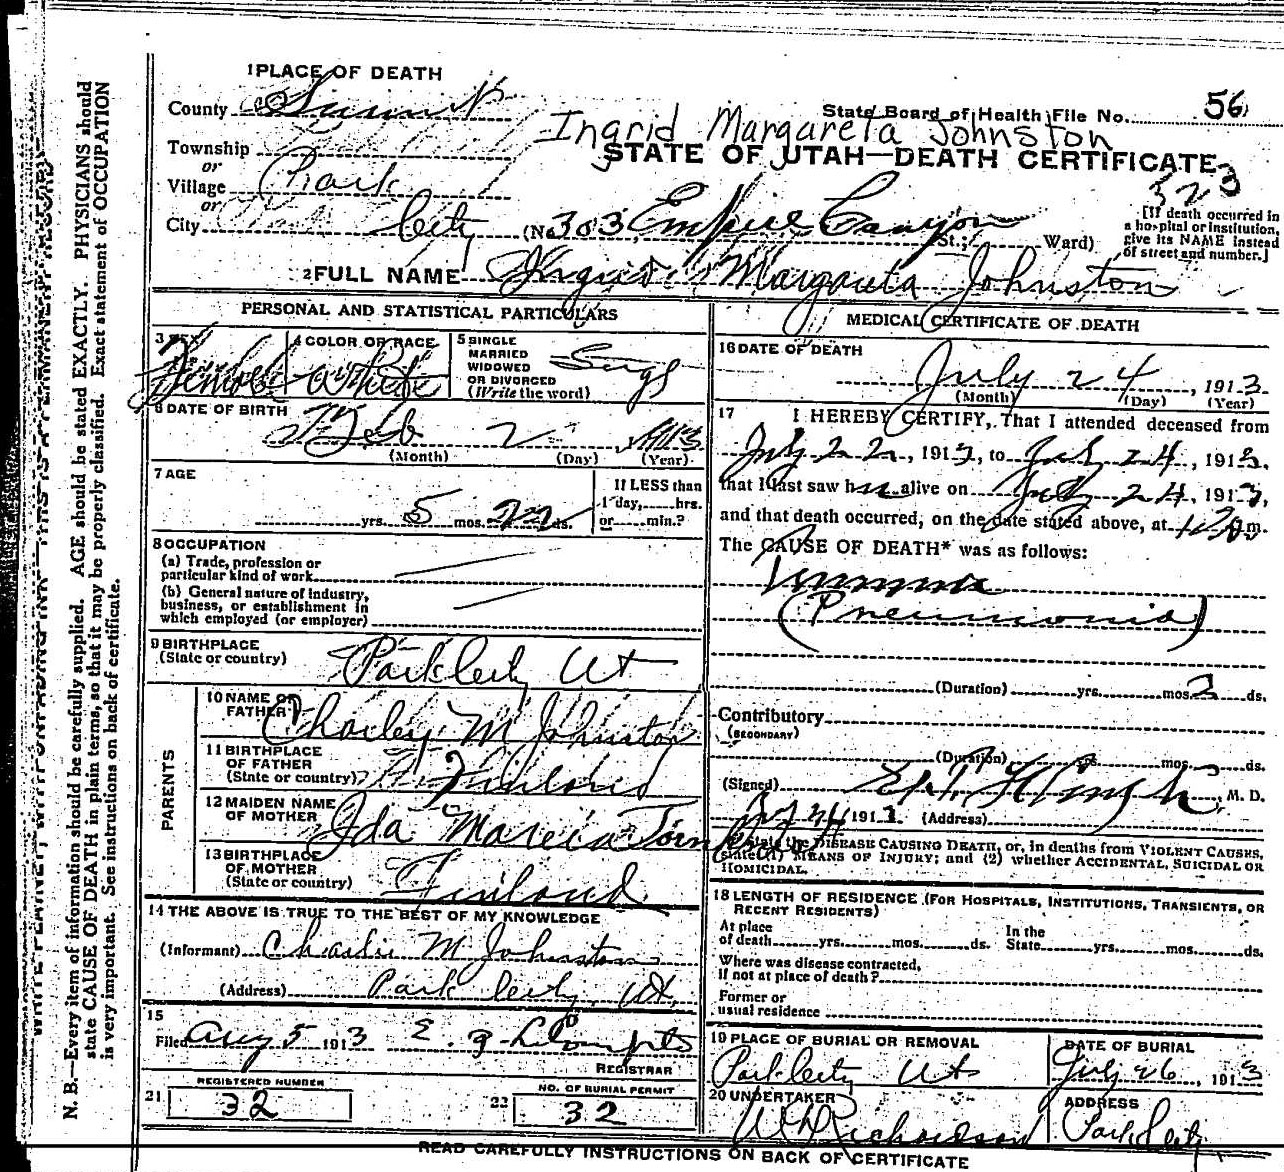 1 PLACE OF DEATH
County Summit
State Board of Health File No. 56
Ingrid Margareta Johnston
Township
or
Village Park
or
City City (No. 303 Empire Canyon St.; Ward)
STATE OF UTAH—DEATH CERTIFICATE
323
[If death occurred in
a hospital or institution,
give its NAME instead
of street and number.]
2 FULL NAME Margareta Johnston
PERSONAL AND STATISTICAL PARTICULARS
3 SEX
Female
4 COLOR OR RACE
White
5 SINGLE
MARRIED
WIDOWED
OR DIVORCED
(Write the word)
Single
6 DATE OF BIRTH
Feb 2 1913
(Month) (Day) (Year)
7 AGE
yrs. 5 mos. 22 ds.
If LESS than
1 day, hrs.
or min.?
8 OCCUPATION
(a) Trade, profession or
particular kind of work
(b) General nature of industry,
business, or establishment in
which employed (or employer)
9 BIRTHPLACE
(State or country)
Park City Ut
PARENTS
10 NAME OF
FATHER
Charley M Johnston
11 BIRTHPLACE
OF FATHER
(State or country)
Finland
12 MAIDEN NAME
OF MOTHER
Ida Maria
13 BIRTHPLACE
OF MOTHER
(State or country)
Finland
14 THE ABOVE IS TRUE TO THE BEST OF MY KNOWLEDGE
(Informant) Charlie M Johnston
(Address) Park City, Ut.
15
Filed Aug 5 1913
REGISTRAR
REGISTERED NUMBER
21 32
NO. OF BURIAL PERMIT
22 32
MEDICAL CERTIFICATE OF DEATH
16 DATE OF DEATH
July 24, 1913
(Month) (Day) (Year)
17 I HEREBY CERTIFY, That I attended deceased from
July 22, 1913, to July 24, 1913,
that I last saw her alive on July 24, 1913,
and that death occurred, on the date stated above, at m.
The CAUSE OF DEATH* was as follows:
(Pneumonia)
(Duration) yrs. mos. 2 ds.
Contributory
(SECONDARY)
(Duration) yrs. mos. ds.
(Signed) M. D.
1913. (Address)
*State the DISEASE CAUSING DEATH, or, in deaths from VIOLENT CAUSES,
state (1) MEANS OF INJURY; and (2) whether ACCIDENTAL, SUICIDAL OR
HOMICIDAL.
18 LENGTH OF RESIDENCE (FOR HOSPITALS, INSTITUTIONS, TRANSIENTS, OR
RECENT RESIDENTS)
At place
of death yrs. mos. ds.
In the
State yrs. mos. ds.
Where was disease contracted,
if not at place of death?
Former or
usual residence
19 PLACE OF BURIAL OR REMOVAL
Park City Ut
DATE OF BURIAL
July 26, 1913
20 UNDERTAKER
Richardson
ADDRESS
Park City
READ CAREFULLY INSTRUCTIONS ON BACK OF CERTIFICATE
WRITE PLAINLY, WITH UNFADING INK—THIS IS A PERMANENT RECORD
N. B.—Every item of information should be carefully supplied. AGE should be stated EXACTLY. PHYSICIANS should
state CAUSE OF DEATH in plain terms, so that it may be properly classified. Exact statement of OCCUPATION
is very important. See instructions on back of certificate.